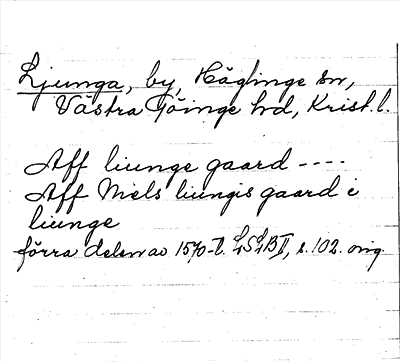 Ljunga, by, Häglinge sn,
Västra Göinge hd, Krist. l.
Aff liunge gaard ----
Aff Niels liungis gaard i
liunge
förra delen av 1570-t. LSLB II, s. 102. orig.